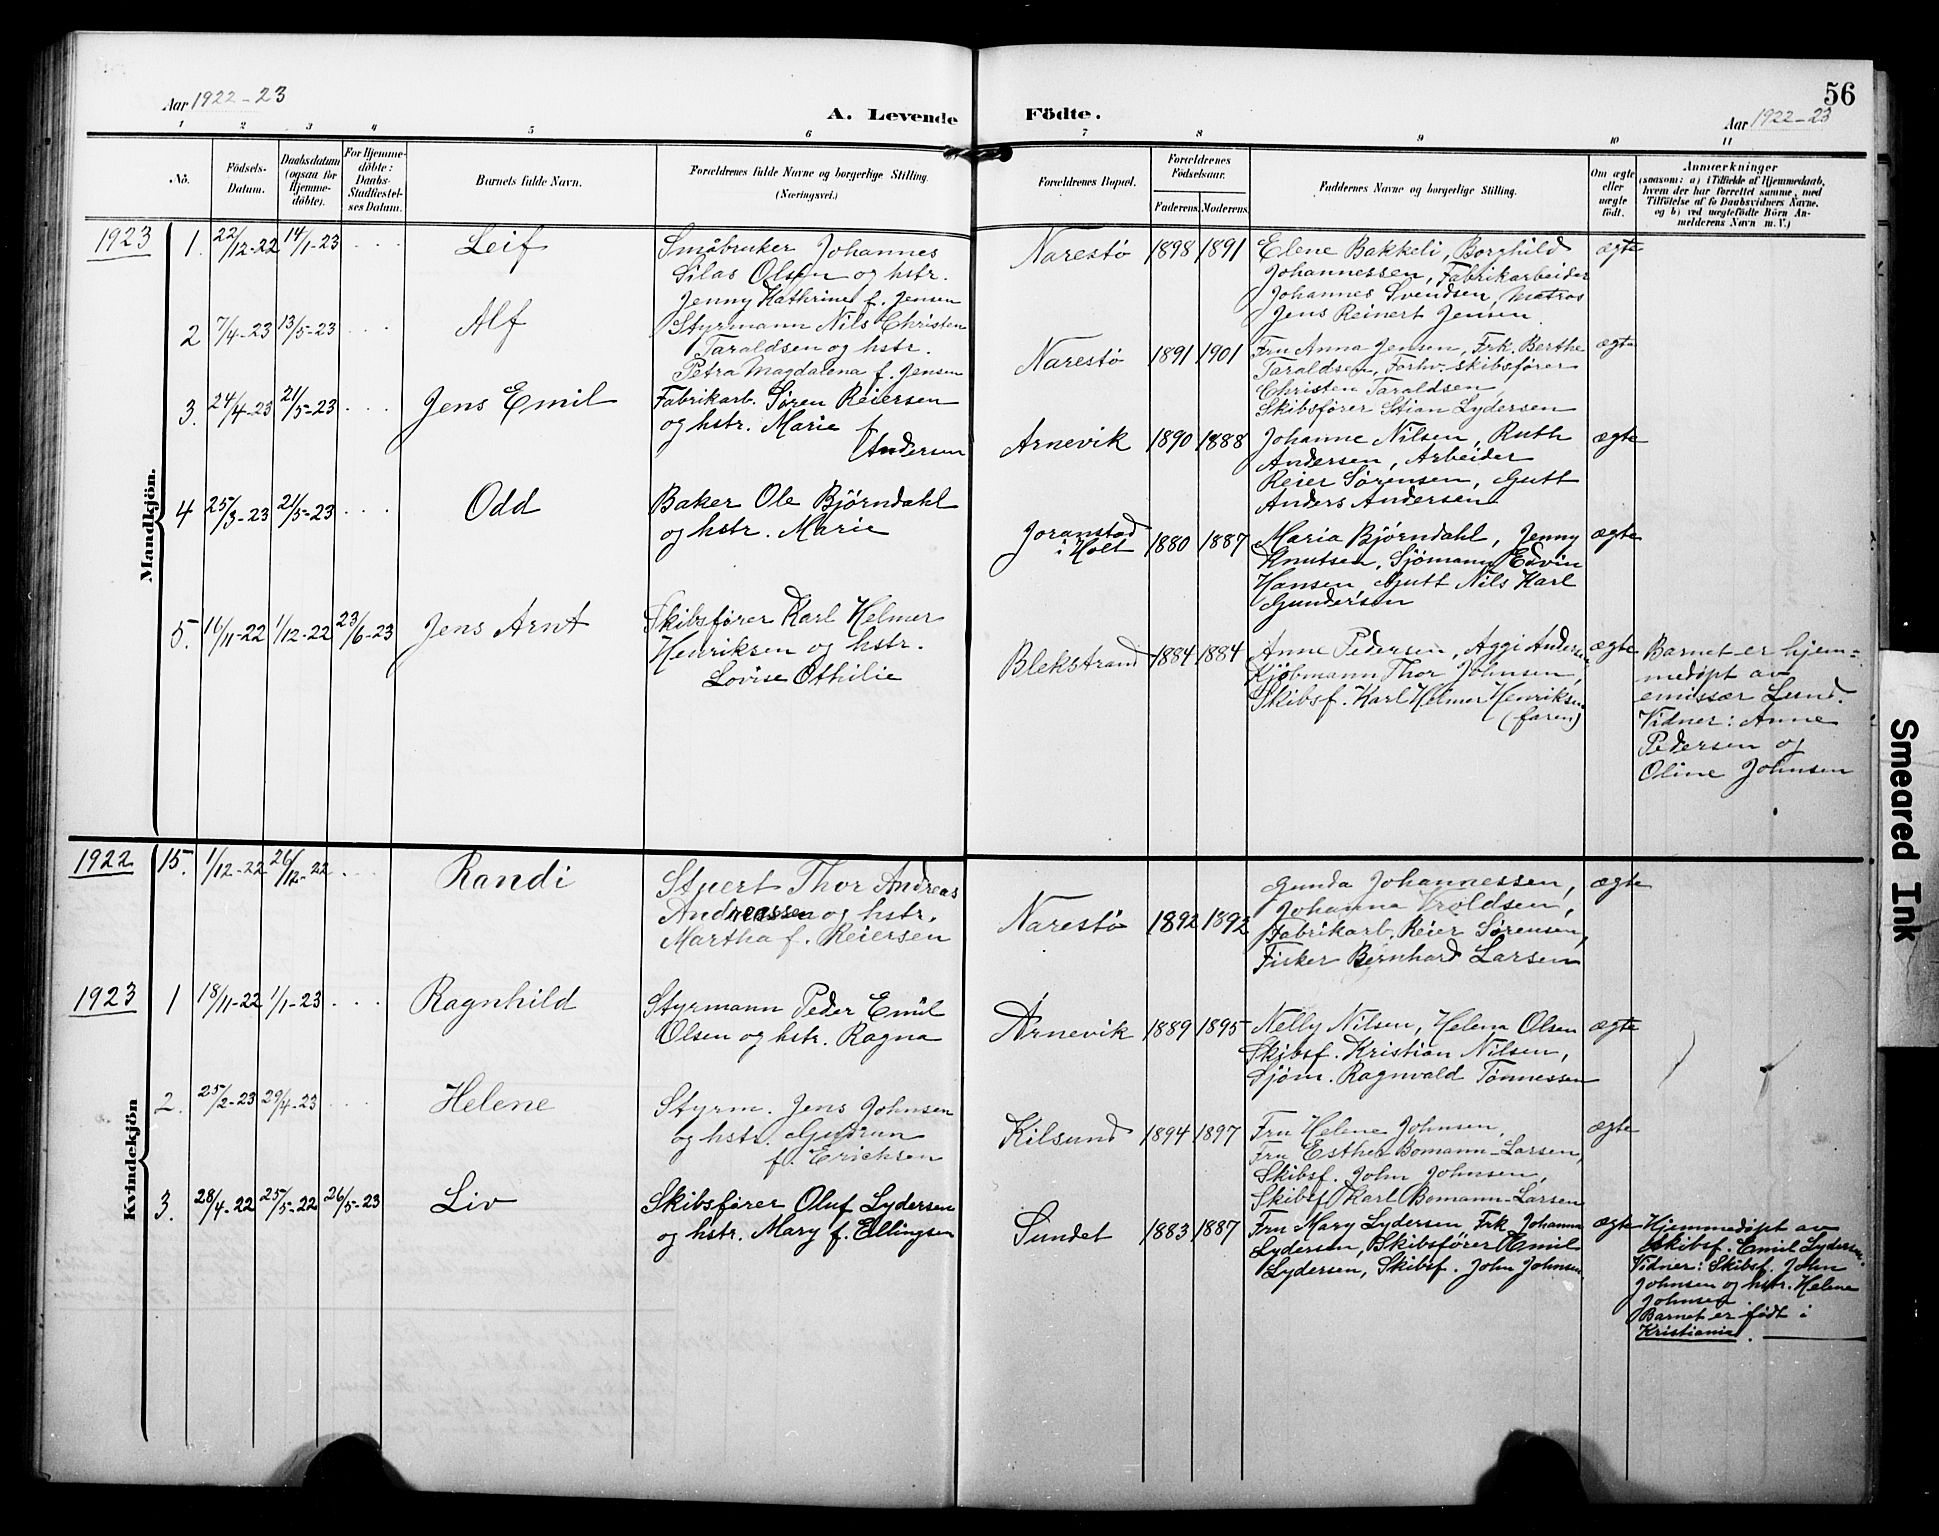 56
Aar 1922-23
A. Levende Födte.
Aar 1922-23
1 2 3 4 5 6 7 8 9 10 11
No.
Födsels-
Datum.
Daabsdatum
(ogsaa for
Hjemme-
döbte).
For Hjemme-
döbte:
Daabs-
Stadfæstel-
ses Datum.
Barnets fulde Navn.
Forældrenes fulde Navne og borgerlige Stilling.
(Næringsvei.)
Forældrenes Bopæl.
Forældrenes
Födselsaar.
Faderens. Moderens.
Faddernes Navne og borgerlige Stilling.
Om ægte
eller
uægte
födt.
Anmærkninger
(saasom: a) i Tilfælde af Hjemmedaab,
hvem der har forrettet samme, med
Tilföielse af to Daabsvidners Navne.
og b) ved uægtefödte Börn An-
melderens Navn m. V.)
Mandkjön.
1923
1. 22/12-22 14/1-23 Leif
Småbruker Johannes
Silas Olsen og hstr.
Jenny Kathrine f. Jensen
Narestø 1898 1891
Elene Bakkeli, Borghild
Johannessen, Fabrikarbeider
Johannes Svendsen, Matros
Jens Reinert Jensen
ægte
2 7/4-23 13/5-23 Alf
Styrmann Nils Christen
Taraldsen og hstr.
Petra Magdalena f. Jensen
Narestø 1891 1901
Fru Anna Jensen, Frk. Berthe
Taraldsen, Forhv. skibsfører
Christen Taraldsen,
Skibsfører Stian Lydersen
ægte
3. 24/4-23 21/5-23 Jens Emil
Fabrikarb. Søren Reiersen
og hstr. Marie f.
Andersen
Arnevik 1890 1888
Johanne Nilsen, Ruth
Andersen, Arbeider
Reier Sørensen, Gutt
Anders Andersen
ægte
4 25/3-23 21/5-23 Odd
Baker Ole Bjørndahl
og hstr. Marie
Joranstad
i Holt
1880 1887
Maria Bjørndahl, Jenny
Knutsen, Sjømann Edvin
Hansen, Gutt Nils Karl
Gundersen
ægte
5. 16/11-22 1/12-22 23/6-23 Jens Arnt
Skibsfører Karl Helmer
Henriksen og hstr.
Lovise Othilie
Blekstrand 1884 1884
Anne Pedersen, Aggi Andersen,
Kjøbmann Thor Johnsen,
Skibsf. Karl Helmer Henriksen
(faren)
ægte
Barnet er hjem=
medøpt av
emissær Lund.
Vidner: Anne
Pedersen og
Oline Johnsen
Kvindekjön
1922
15. 1/12-22 26/12-22 Randi
Stuert Thor Andreas
Andreassen og hstr.
Martha f. Reiersen
Narestø 1892 1892
Gunda Johannessen,
Johanna Vroldsen,
Fabrikarb. Reier Sørensen,
Fisker Bernhard Larsen
ægte
1923
1 18/11-22 1/1-23 Ragnhild
Styrmann Peder Emil
Olsen og hstr. Ragna
Arnevik 1889 1895
Nelly Nilsen, Helena Olsen
Skibsf. Kristian Nilsen,
Sjøm. Ragnvald Tønnessen
ægte
2. 25/2-23 29/4-23 Helene
Styrm. Jens Johnsen
og hstr. Gudrun
f. Erichsen
Kilsund 1894 1897
Fru Helene Johnsen,
Fru Esther Bomann-Larsen,
Skibsf. John Johnsen,
Skibsf. Karl Bomann-Larsen
ægte
3. 28/4-22 25/5-22 26/5-23 Liv
Skibsfører Oluf Lydersen
og hstr. Mary f. Ellingsen
Sundet 1883 1887
Fru Mary Lydersen, Frk Johanna
Lydersen, Skibsfører Emil
Lydersen, Skibsf. John Johnsen.
ægte
Hjemmedøpt av
skibsf. Emil Lydersen.
Vidner: Skibsf. John
Johnsen og hstr. Helene
Johnsen.
Barnet er født i
Kristiania.
Smeared Ink